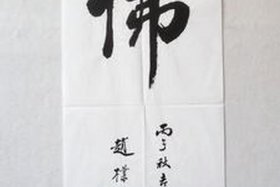 佛
丙子秋
趙樸